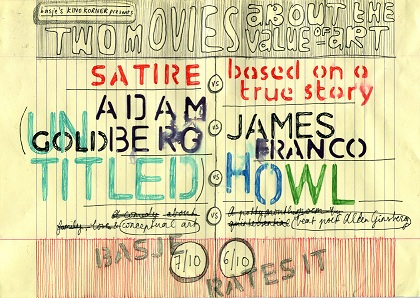 basje's KINO KORNER presents
TWO MOVIES ABOUT THE VALUE OF ART
SATIRE
VS
based on a true story
ADAM GOLDBERG
VS
JAMES FRANCO
(UN)TITLED
VS
HOWL
a comedy about
family, love & conceptual art
VS
beat poet Allen Ginsberg
BASJE RATES IT
7/10
6/10